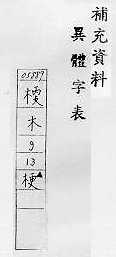 補充資料
異體字表
05887
木
9
13
梗